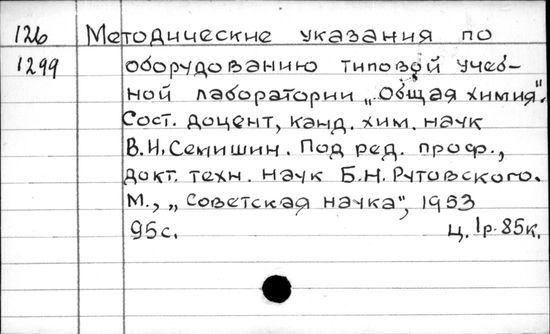 126 Методические указания по
1299 оборудованию типовой учеб-
ной лаборатории „Общая химия".
Сост. доцент, канд. хим. наук
В.И. Семишин. Под ред. проф.,
докт. техн. наук Б.Н. Рутовского.
М., „Советская наука", 1953
95с. ц. 1р. 85к.